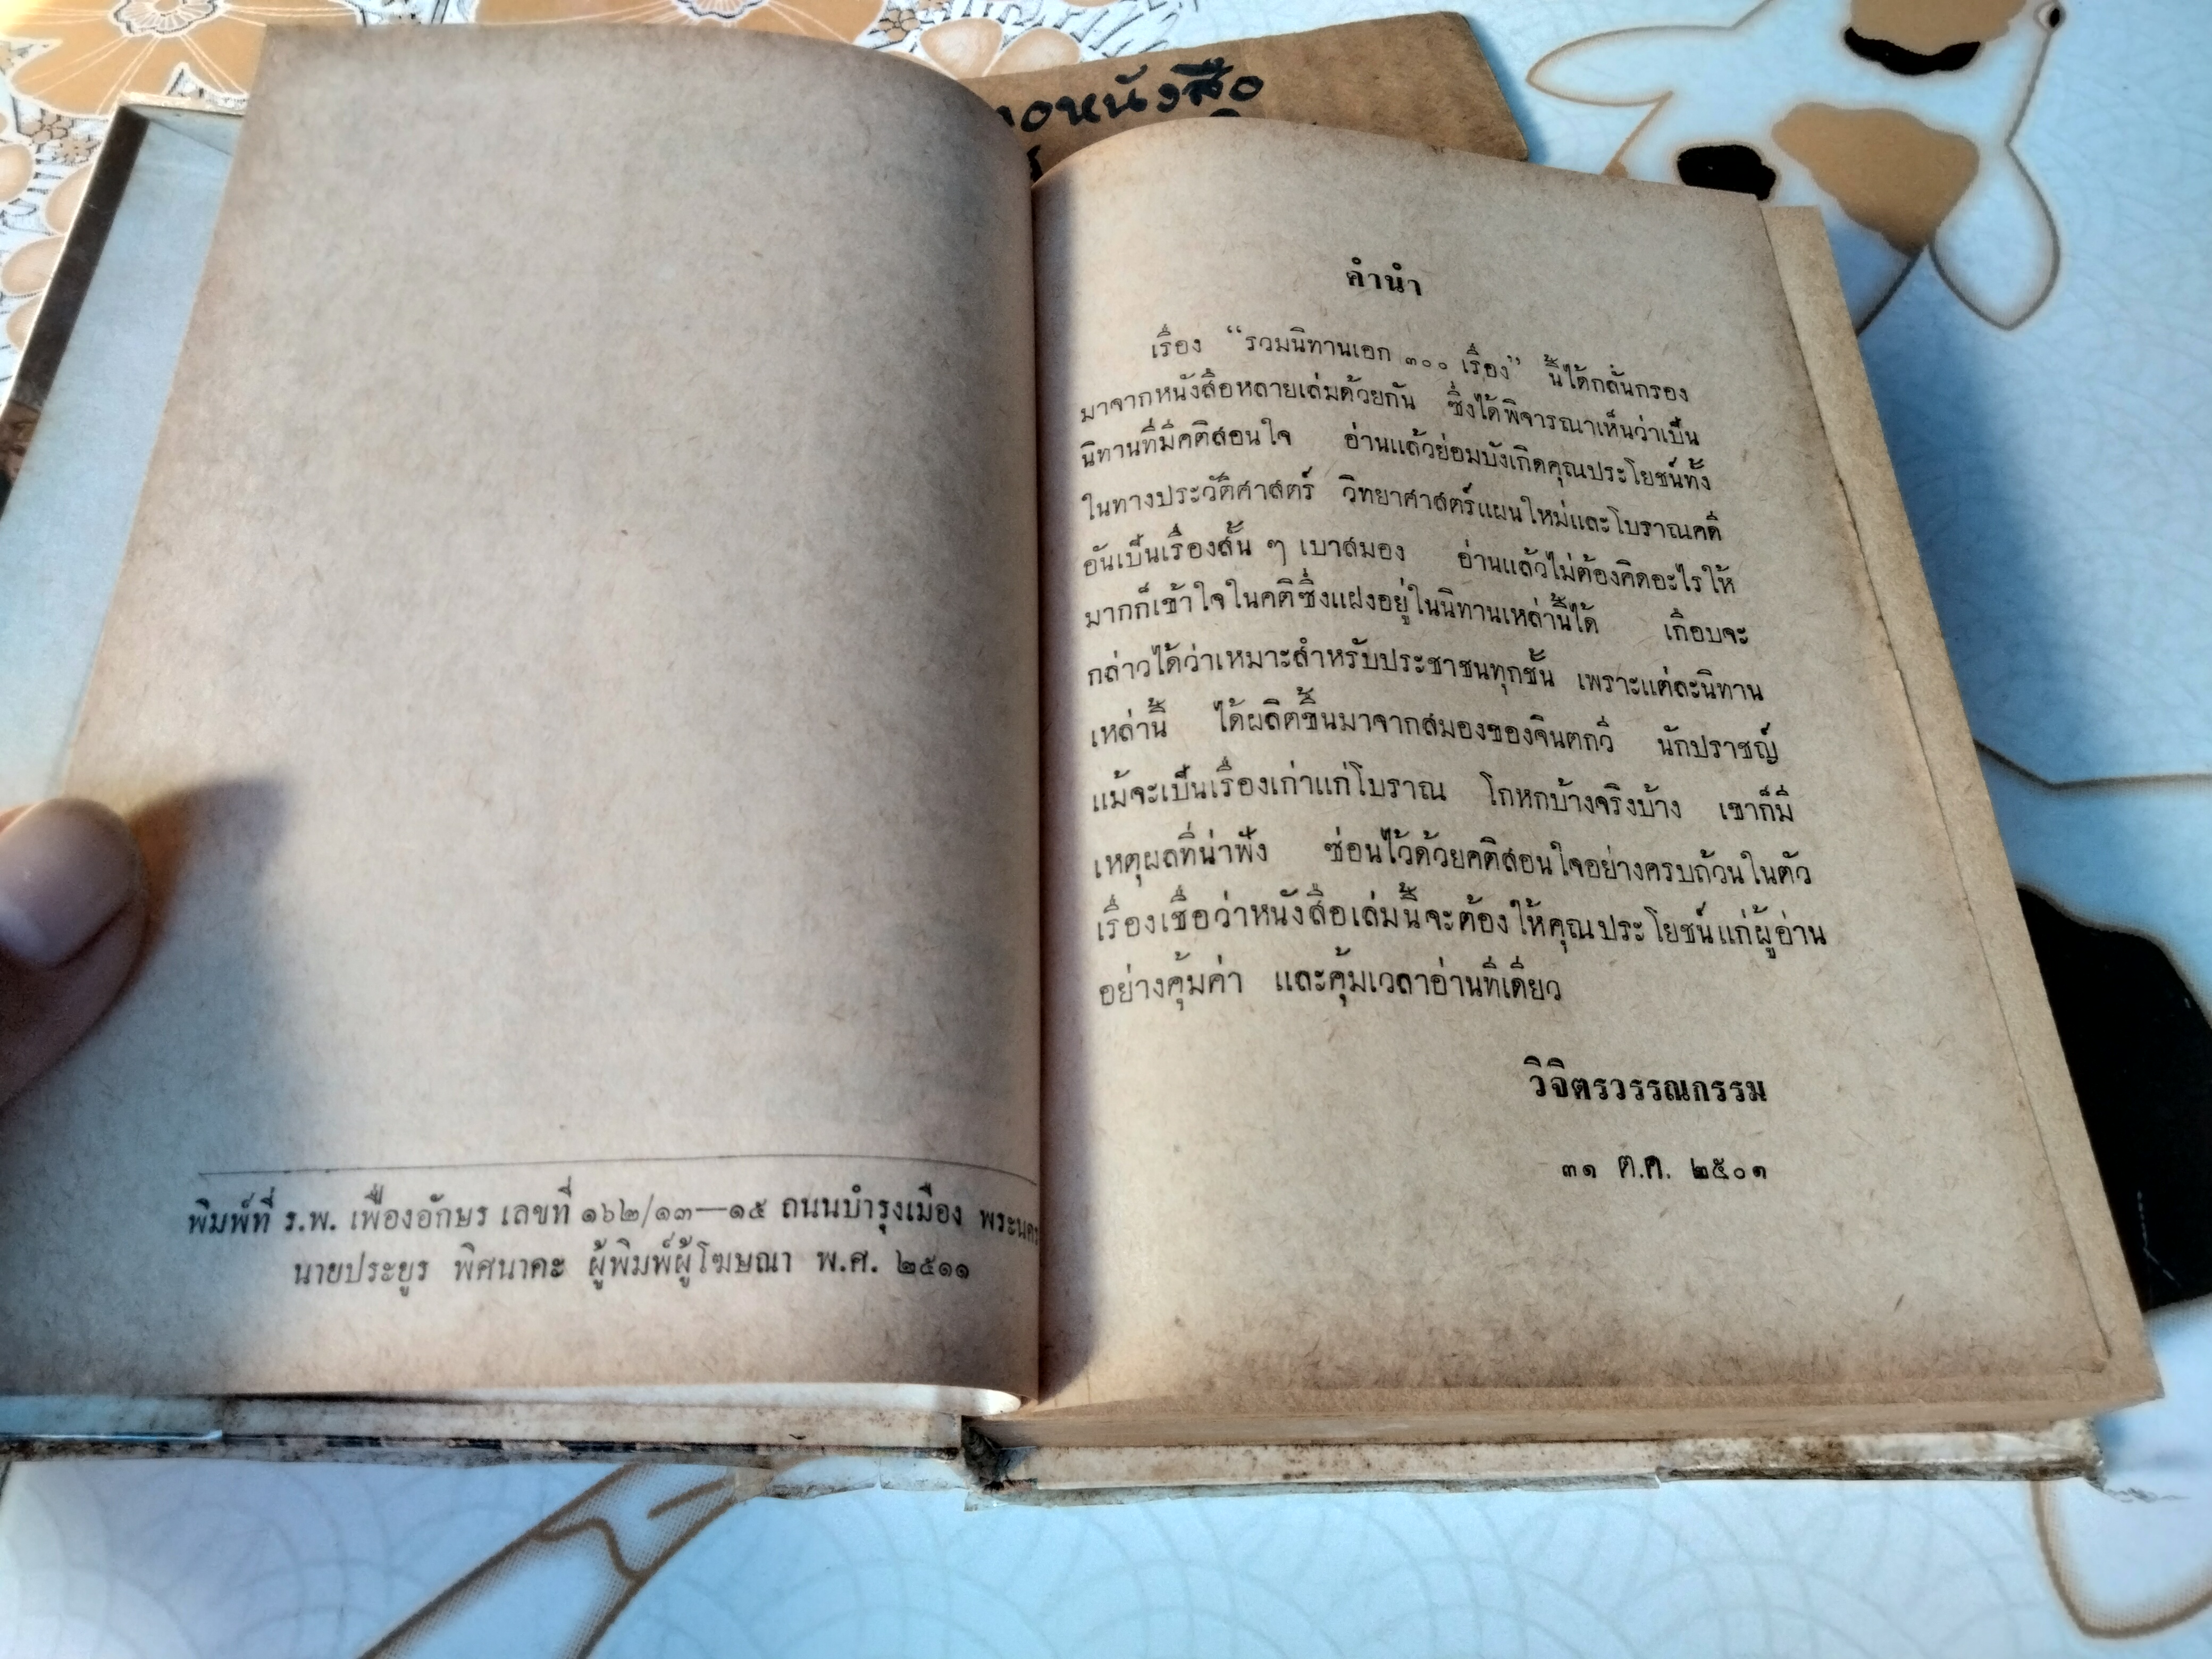 อหนังสือ
พิมพ์ที่ ร.พ. เฟื่องอักษร เลขที่ ๑๖๒/๑๓—๑๕ ถนนบำรุงเมือง พระนคร
นายประยูร พิศนาคะ ผู้พิมพ์ผู้โฆษณา พ.ศ. ๒๕๑๑
คำนำ
เรื่อง “รวมนิทานเอก ๓๐๐ เรื่อง” นี้ได้กลั่นกรอง
มาจากหนังสือหลายเล่มด้วยกัน ซึ่งได้พิจารณาเห็นว่าเป็น
นิทานที่มีคติสอนใจ อ่านแล้วย่อมบังเกิดคุณประโยชน์ทั้ง
ในทางประวัติศาสตร์ วิทยาศาสตร์แผนใหม่และโบราณคดี
อันเป็นเรื่องสั้น ๆ เบาสมอง อ่านแล้วไม่ต้องคิดอะไรให้
มากก็เข้าใจในคติซึ่งแฝงอยู่ในนิทานเหล่านี้ได้ เกือบจะ
กล่าวได้ว่าเหมาะสำหรับประชาชนทุกชั้น เพราะแต่ละนิทาน
เหล่านี้ ได้ผลิตขึ้นมาจากสมองของจินตกวี นักปราชญ์
แม้จะเป็นเรื่องเก่าแก่โบราณ โกหกบ้างจริงบ้าง เขาก็มี
เหตุผลที่น่าฟัง ซ่อนไว้ด้วยคติสอนใจอย่างครบถ้วนในตัว
เรื่องเชื่อว่าหนังสือเล่มนี้จะต้องให้คุณประโยชน์แก่ผู้อ่าน
อย่างคุ้มค่า และคุ้มเวลาอ่านทีเดียว
วิจิตรวรรณกรรม
๓๑ ต.ค. ๒๕๐๑